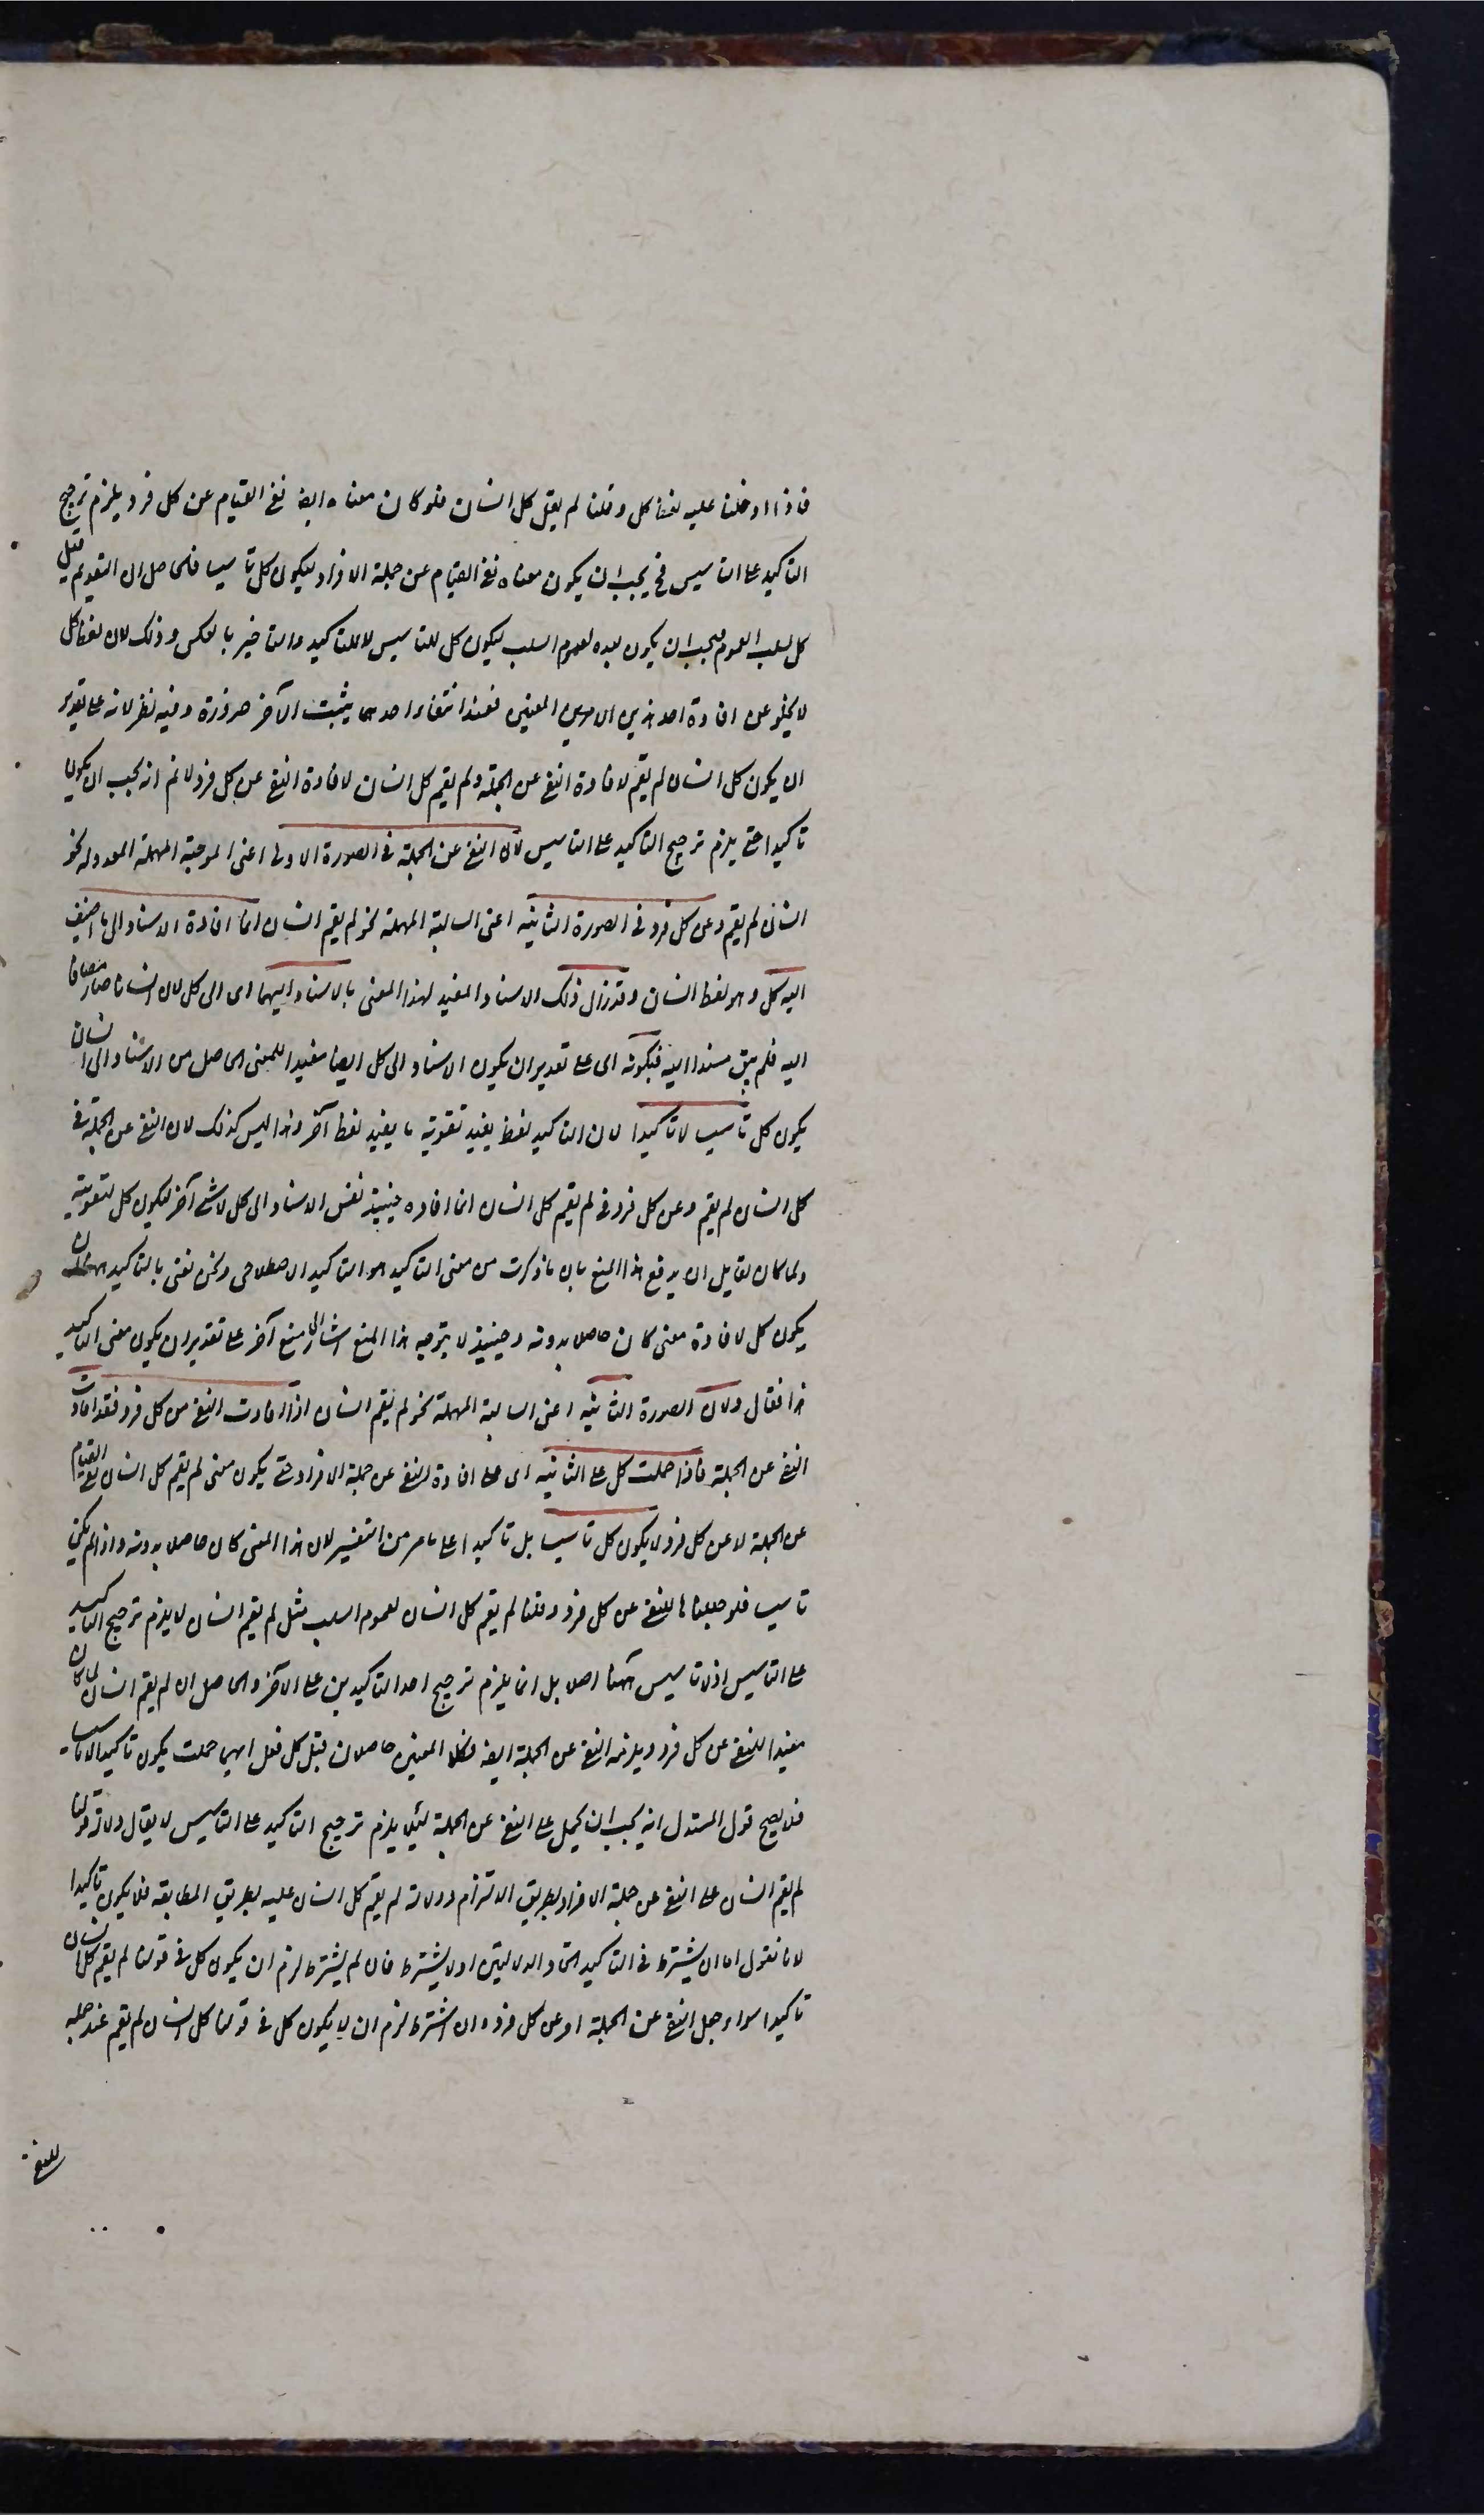 فاذا ادخلنا عليه لفظ كل وقلنا لم يقل كل انسان فلو كان معناه ايضا نفى القيام عن كل فرد يلزم ترجيح
التاكيد على التاسيس فح يجب ان يكون معناه نفى القيام عن جملة الافراد ليكون كل تاسيسا فالحاصل ان التقديم قبل
كل لسلب العموم فيجب ان يكون بعده لعموم السلب ليكون كل للتاسيس لا للتاكيد والتاخير بالعكس وذلك لان لفظ كل
لا يخلو عن افادة احد هذين الامرين المعنيين فعند انتفاء احدهما يثبت الآخر ضرورة وفيه نظر لانه على تقدير
ان يكون كل انسان لم يقم لافادة النفى عن الجملة ولم يقم كل انسان لافادة النفى عن كل فرد لا نم انه يجب ان يكون
تاكيدا حتى يلزم ترجيح التاكيد على التاسيس لان النفى عن الجملة فى الصورة الاولى اعنى الموجبة المهملة المعدولة نحو
انسان لم يقم وعن كل فرد فى الصورة الثانية اعنى السالبة المهملة نحو لم يقم انسان انما افاده الاسناد الى ما اضيف
اليه كل وهو لفظ انسان وقد زال ذلك الاسناد المفيد لهذا المعنى بالاسناد اليها اى الى كل لان انسانا صار مضافا
اليه فلم يبق مسندا اليه فيكون اى على تقدير ان يكون الاسناد الى كل ايضا مفيدا للمعنى الحاصل من الاسناد الى انسان
يكون كل تاسيسا لا تاكيدا لان التاكيد لفظ يفيد تقوية ما يفيد لفظ آخر وهذا ليس كذلك لان النفى عن الجملة فى
كل انسان لم يقم وعن كل فرد فى لم يقم كل انسان انما افاده حينئذ نفس الاسناد الى كل لا شئ آخر ليكون كل لتقويته
ولما كان لقايل ان يدفع هذا المنع بان ما ذكرت من معنى التاكيد هو التاكيد الاصطلاحى ونحن نعنى بالتاكيد ههنا ان
يكون كل لافادة معنى كان حاصلا بدونه وحينئذ لا يتوجه هذا المنع اشار الى منع آخر على تقدير ان يكون معنى التاكيد
هذا فقال ولان الصورة الثانية اعنى السالبة المهملة نحو لم يقم انسان اذا افادت النفى عن كل فرد فقد افادت
النفى عن الجملة فاذا حملت كل على الثانية اى على افادة النفى عن جملة الافراد حتى يكون معنى لم يقم كل انسان نفى القيام
عن الجملة لا عن كل فرد لا يكون كل تاسيسا بل تاكيدا على ما مر من التفسير لان هذا المعنى كان حاصلا بدونه واذا لم يكن
تاسيسا فلو جعلناها للنفى عن كل فرد وقلنا لم يقم كل انسان لعموم السلب مثل لم يقم انسان لا يلزم ترجيح التاكيد
على التاسيس اذ لا تاسيس ههنا اصلا بل انما يلزم ترجيح احد التاكيدين على الآخر والحاصل ان لم يقم انسان لما كان
مفيدا للنفى عن كل فرد ويلزمه النفى عن الجملة ايضا فكلا المعنيين حاصلان قبل كل فعلى ايهما حملت يكون تاكيدا لا تاسيسا
فلا يصح قول المستدل انه يجب ان يحمل على النفى عن الجملة لئلا يلزم ترجيح التاكيد على التاسيس لا يقال دلالة قولنا
لم يقم انسان على النفى عن جملة الافراد بطريق الالتزام ودلالة لم يقم كل انسان عليه بطريق المطابقة فلا يكون تاكيدا
لانا نقول اما ان يشترط فى التاكيد اتحاد الدلالتين او لا يشترط فان لم يشترط لزم ان يكون كل فى قولنا لم يقم كل انسان
تاكيدا سواء جعل النفى عن الجملة او عن كل فرد وان اشترط لزم ان لا يكون كل فى قولنا كل انسان لم يقم عند جعله
للنفى